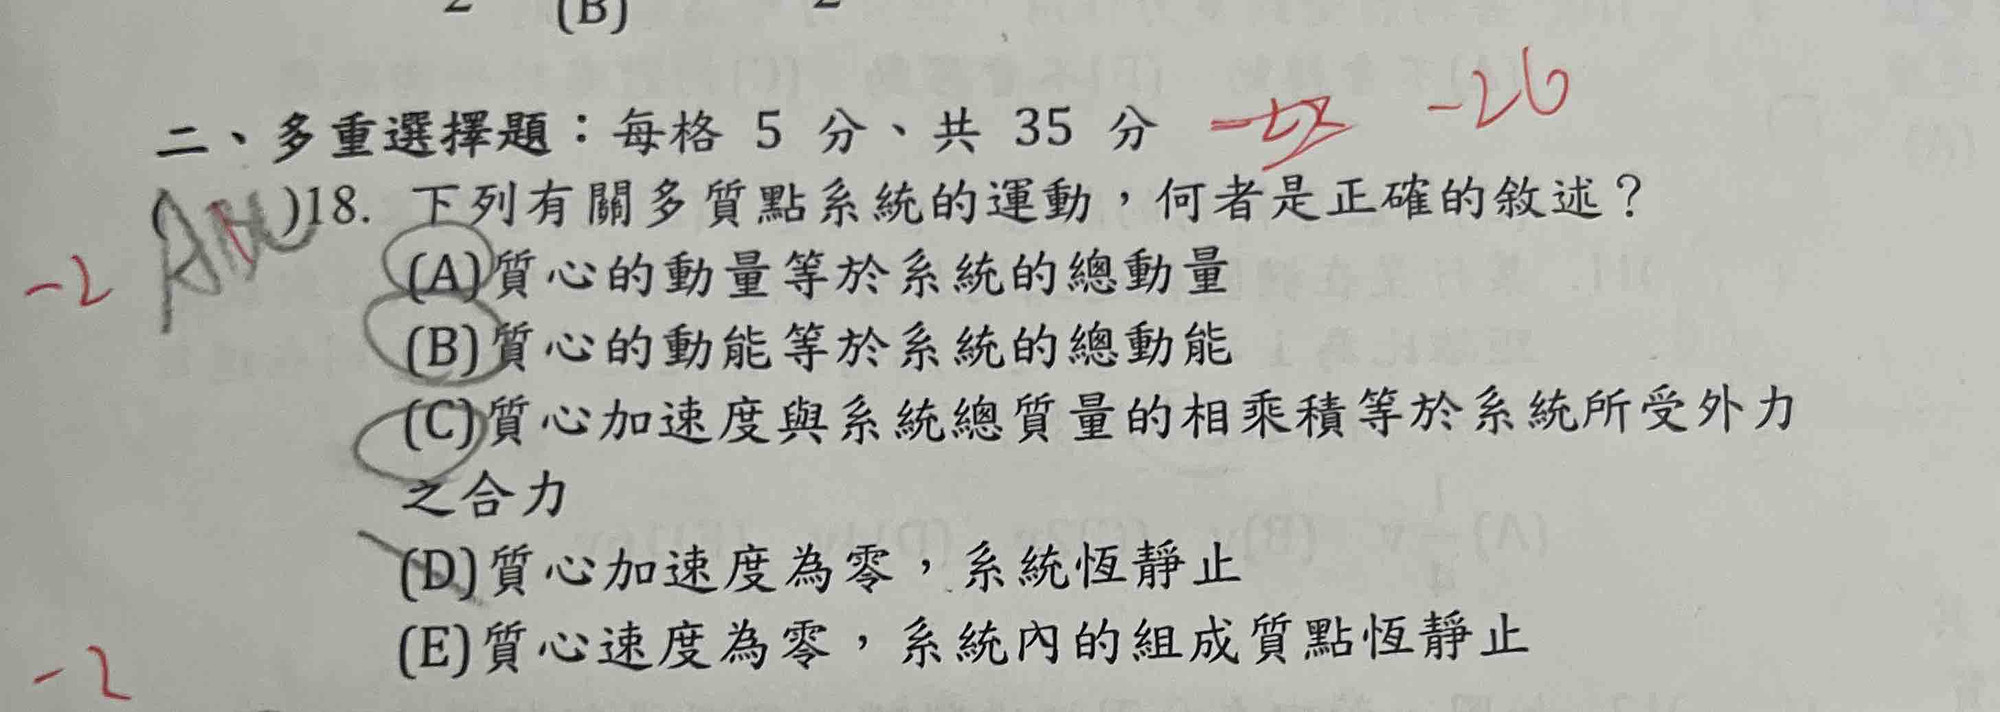 (B)
二、多重選擇題：每格 5 分、共 35 分 -26
-2 ( )18. 下列有關多質點系統的運動，何者是正確的敘述？
(A)質心的動量等於系統的總動量
(B)質心的動能等於系統的總動能
(C)質心加速度與系統總質量的相乘積等於系統所受外力
之合力
(D)質心加速度為零，系統恆靜止
(E)質心速度為零，系統內的組成質點恆靜止
-2